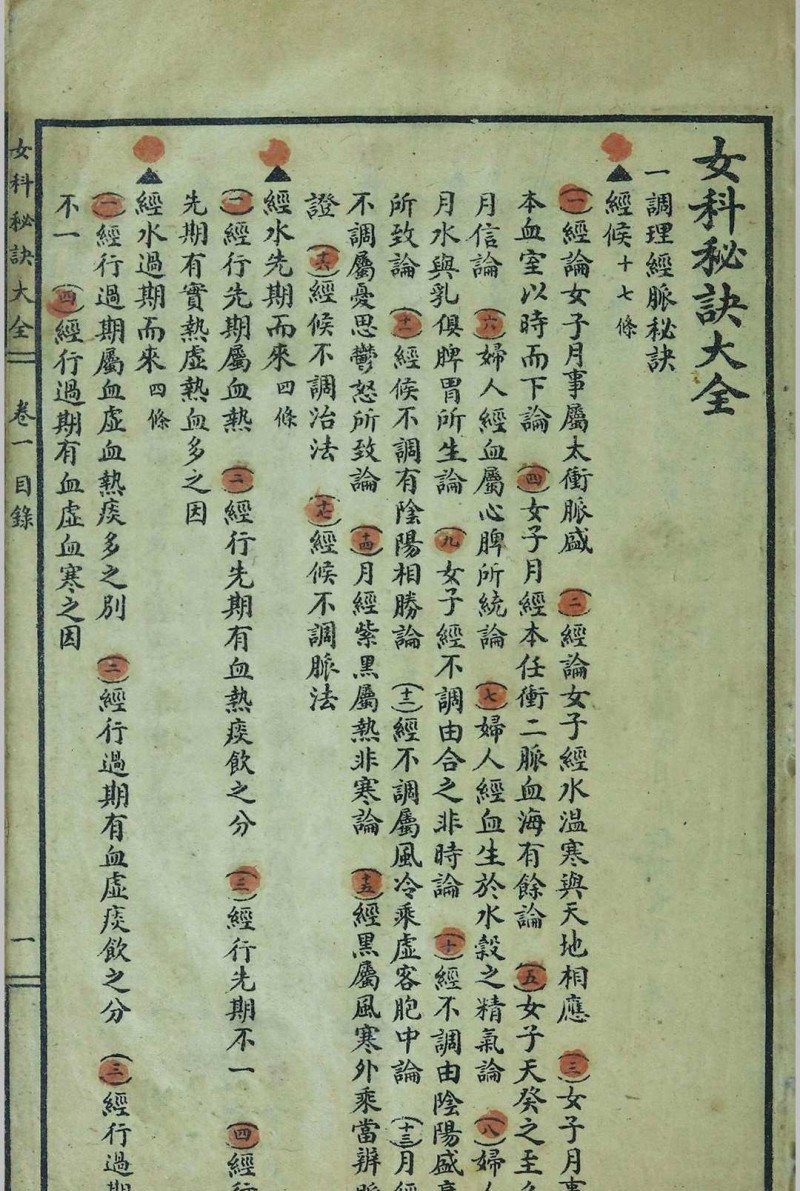 女科秘訣大全
一調理經脈秘訣
經候十七條
(一)經論女子月事屬太衝脈盛 (二)經論女子經水溫寒與天地相應 (三)女子月事
本血室以時而下論 (四)女子月經本任衝二脈血海有餘論 (五)女子天癸之至
月信論 (六)婦人經血屬心脾所統論 (七)婦人經血生於水穀之精氣論 (八)婦人
月水與乳俱脾胃所生論 (九)女子經不調由合之非時論 (十)經不調由陰陽盛
所致論 (十一)經候不調有陰陽相勝論 (十二)經不調屬風冷乘虛客胞中論 (十三)月經
不調屬憂思鬱怒所致論 (十四)月經紫黑屬熱非寒論 (十五)經黑屬風寒外乘當辨
證 (十六)經候不調治法 (十七)經候不調脈法
▲經水先期而來四條
(一)經行先期屬血熱 (二)經行先期有血熱痰飲之分 (三)經行先期不一 (四)經行
先期有實熱虛熱血多之因
▲經水過期而來四條
(一)經行過期屬血虛血熱痰多之別 (二)經行過期有血虛痰飲之分 (三)經行過期
不一 (四)經行過期有血虛血寒之因
女科秘訣大全 卷一 目錄 一